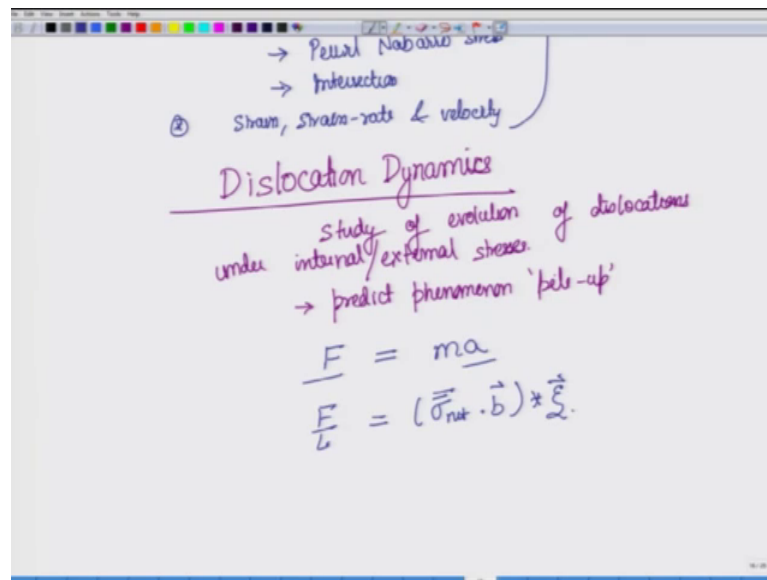 → Peierl Nabarro stress
→ Intersection
② Strain, Strain-rate & velocity
Dislocation Dynamics
study of evolution of dislocations
under internal/external stresses.
→ predict phenomenon 'pile-up'
F = ma
F/L = (σ̿net · b⃗) * ξ⃗.